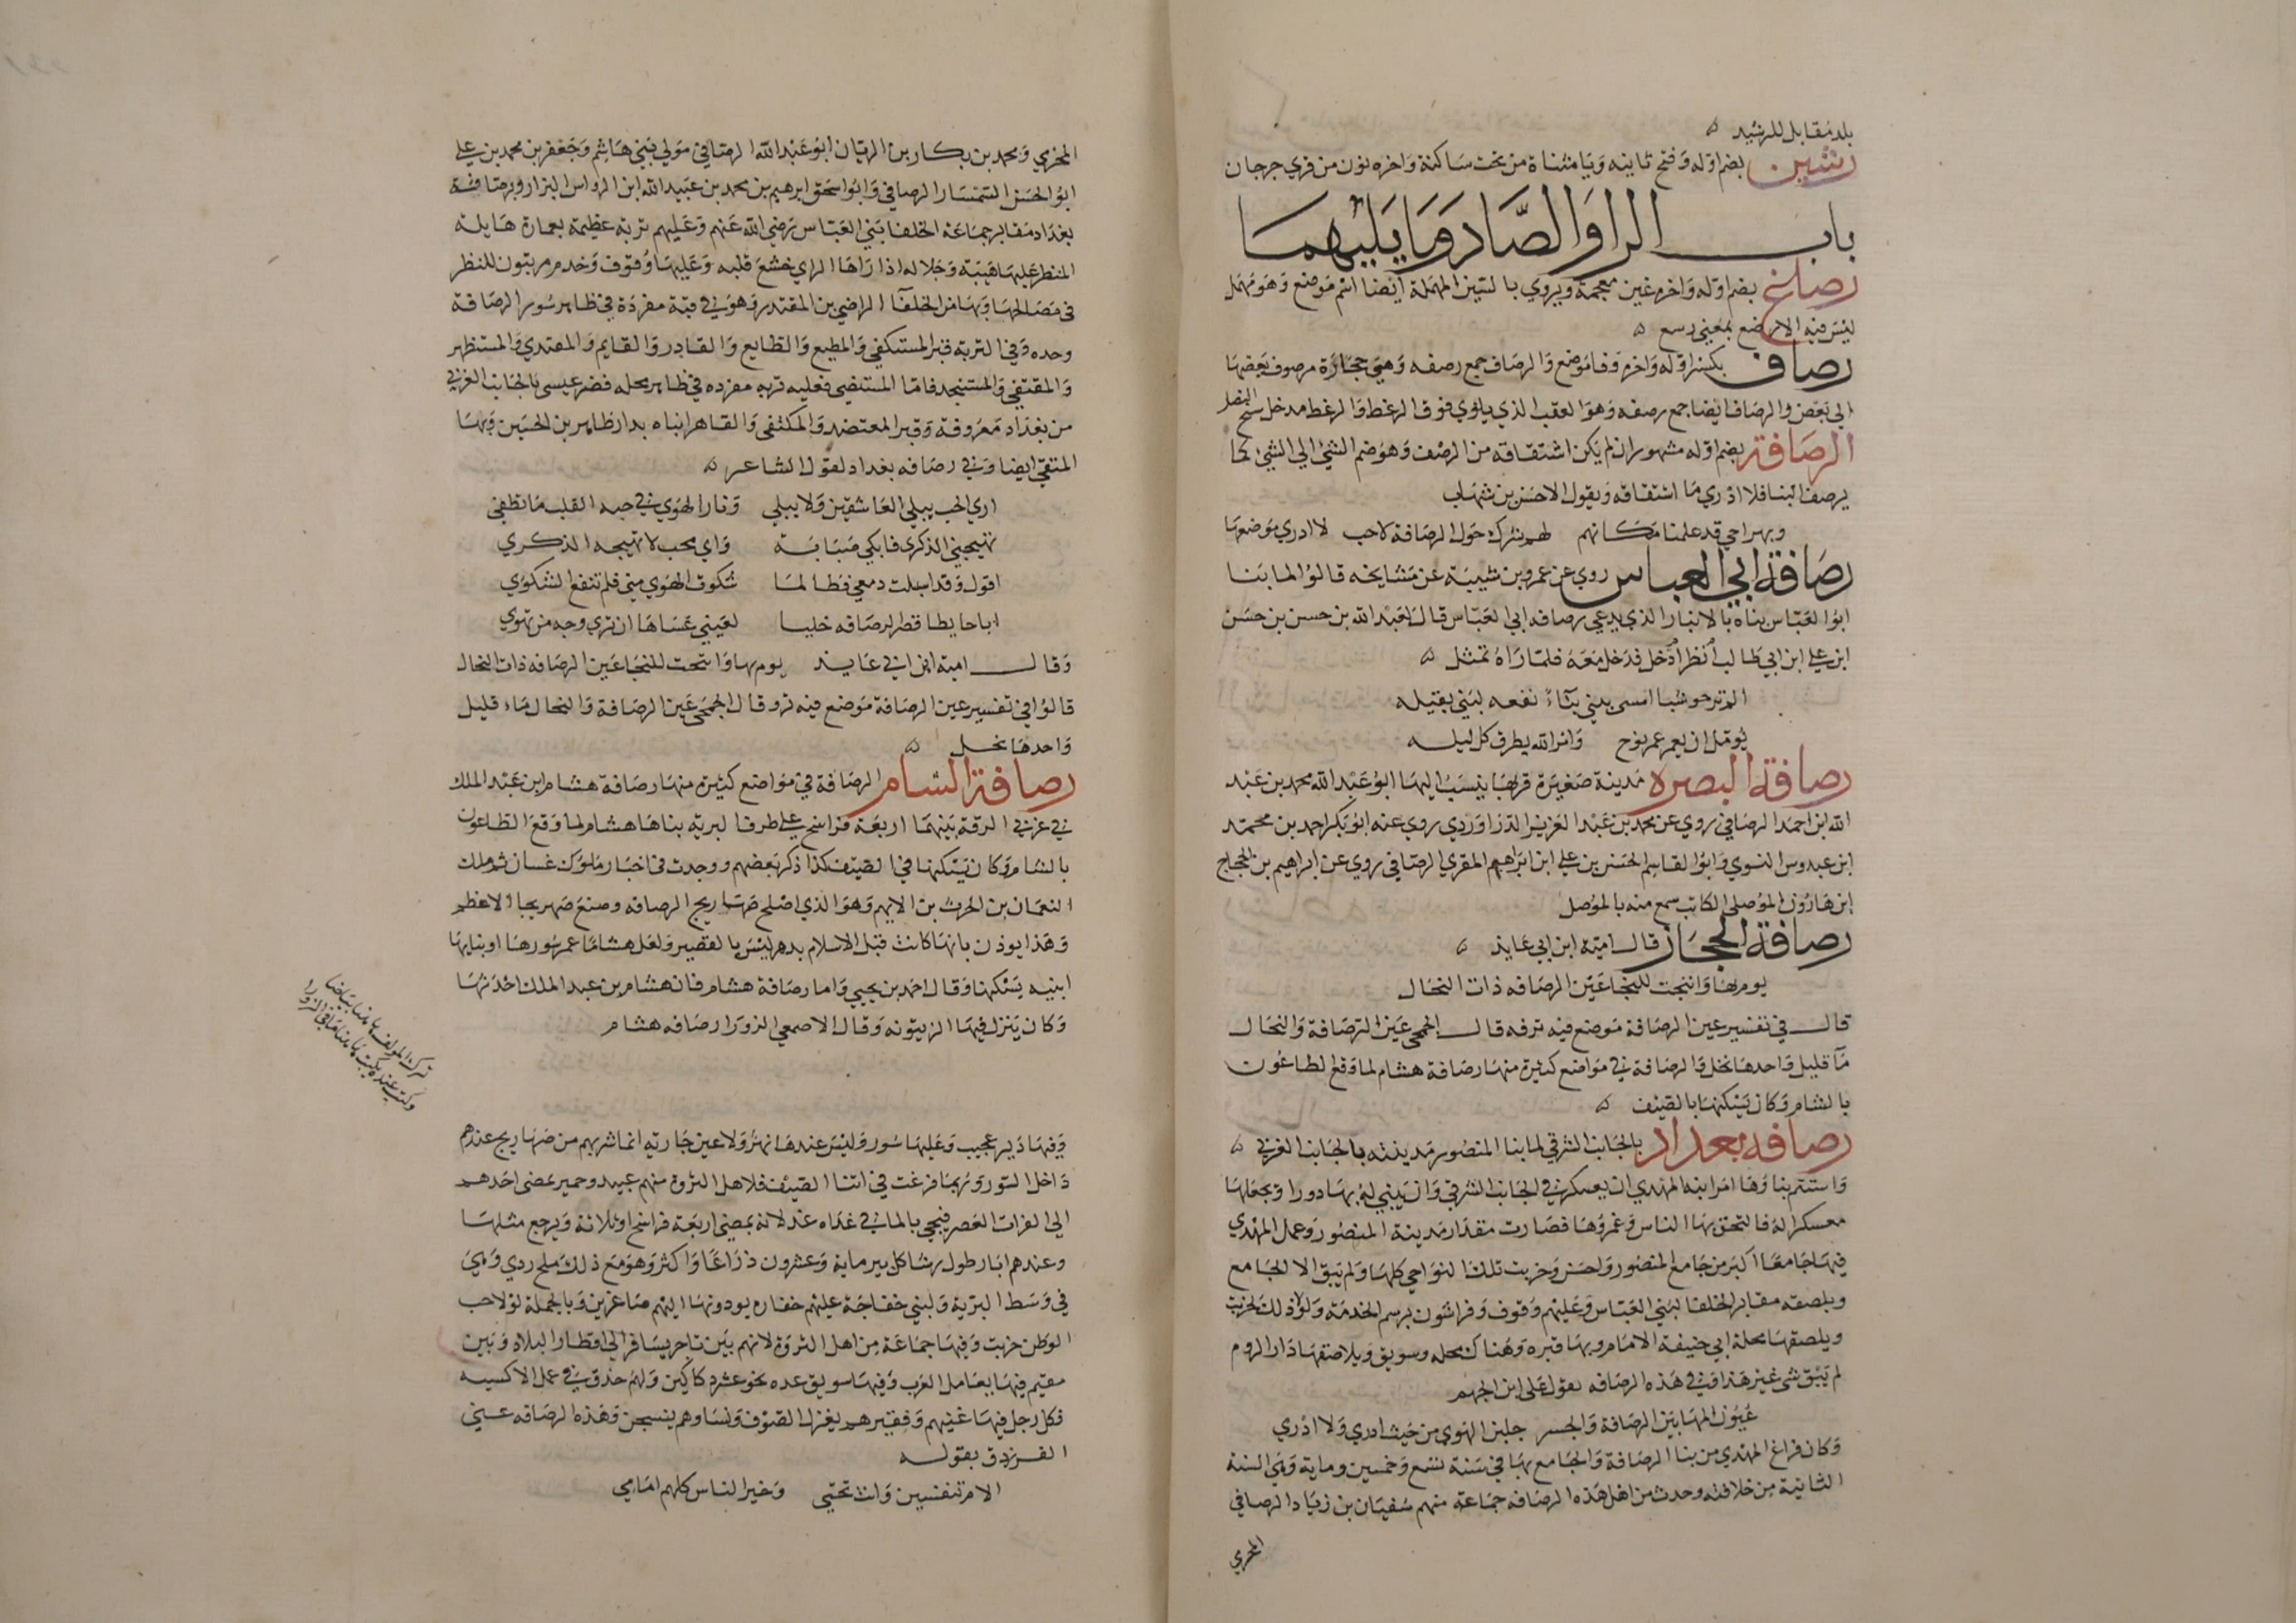 بلد مقابل للرشيد ه
رشين بضم اوله وفتح ثانيه ويا مثناة من تحت ساكنة واخره نون من قري جرجان
باب الرا والصاد وما يليهما
رصاغ بضم اوله واخره غين معجمة ويروي بالسين المهملة ايضا اسم موضع وهو مهمل
ليس فيه الا رصغ بمعني رسغ ه
رصاف بكسر اوله واخره فا موضع والرصاف جمع رصفه وهي حجارة مرصوف بعضها
الي بعض والرصاف ايضا جمع رصفه وهو العقب الذي يلوي فوق الرعظ والرعظ مدخل سنخ النصل
الرصافة بضم اوله مشهور ان لم يكن اشتقاقه من الرصف وهو ضم الشي الي الشي كما
يرصف البنا فلا ادري ما اشتقاقه ويقول الاخنس بن شهاب
وبهراحي قد علمنا مكانهم لهم شرك حول الرصافة لاحب لا ادري موضعها
رصافة ابي العباس روي عن عمرو بن شيبة عن مشايخه قالوا لما بنا
ابو العباس بناه بالانبار الذي يدعي رصافه ابي العباس قال لعبد الله بن حسن بن حسن
ابن علي ابن ابي طالب انظر ادخل فدخل معه فلما راه تمثل ه
الم تر حوشبا امسى يبني بناء نفعه لبني بقيله
يومل ان يعمر عمر نوح وامر الله يطرق كل ليله
رصافة البصره مدينة صغيرة قربها ينسب اليها ابو عبد الله محمد بن عبد
الله ابن احمد الرصافي روي عن محمد بن عبد العزيز الدراوردي روي عنه ابو بكر احمد بن محمد
ابن عبدوس النسوي وابو القاسم الحسن بن علي ابن ابراهيم المقري الرصافي روي عن ابراهيم بن الحجاج
ابن هارون الموصلي الكاتب سمع منه بالموصل
رصافة الحجاز قال امية ابن ابي عايذ ه
يوم بها وانتحت للنجا عين الرصافه ذات النجال
قال في تفسير عين الرصافة موضع فيه نز فه قال الجمحي عين الرصافة والنجال
ما قليل واحدها نجل والرصافة في مواضع كثيرة منها رصافة هشام لما وقع الطاعون
بالشام وكان يسكنها بالصيف ه
رصافه بغداد بالجانب الشرقي لما بنا المنصور مدينته بالجانب الغربي ه
واستتم بناوها امر ابنه المهدي ان يعسكر في الجانب الشرقي وان يبني له بها دورا ويجعلها
معسكرا له فالتحق بها الناس وعمروها فصارت مقدار مدينة المنصور وعمل المهدي
فيها جامعا اكبر من جامع المنصور واحسن وخربت تلك النواحي كلها ولم يبق الا الجامع
وبلصقه مقابر الخلفا لبني العباس وعليهم وقوف وفراشون برسم الخدمة ولولا ذلك لخربت
ويلصقها محلة ابي حنيفة الامام وبها قبره وهناك محله وسويق ويلاصقها دار الروم
لم يبق شي غير هذا وفي هذه الرصافه يقول علي ابن الجهم
عيون المها بين الرصافة والجسر جلبن الهوي من حيث ادري ولا ادري
وكان فراغ المهدي من بنا الرصافة والجامع بها في سنة تسع وخمسين وماية وهي السنة
الثانية من خلافته وحدث من اهل هذه الرصافه جماعة منهم سفيان بن زياد الرصافي
المخرمي
المخرمي ومحمد بن بكار بن الريان ابو عبد الله الرصافي مولي بني هاشم وجعفر بن محمد بن علي
ابو الحسن السمسار الرصافي وابو اسحق ابرهيم بن محمد بن عبيد الله ابن الرواس البزار وبرصافة
بغداد مقابر جماعة الخلفا بني العباس رضي الله عنهم وعليهم تربة عظيمة بعمارة هايلة
المنظر عليها هيبة وجلاله اذا راها الراي خشع قلبه وعليها وقوف وخدم مرتبون للنظر
في مصالحها وبها من الخلفآ الراضي بن المقتدر وهو في قبة مفردة في ظاهر سور الرصافة
وحده وفي التربة قبر المستكفي والمطيع والطايع والقادر والقايم والمقتدي والمستظهر
والمقتفي والمستنجد فاما المستضي فعليه تربه مفرده في ظاهر محله قصر عيسي بالجانب الغربي
من بغداد معروفة وقبر المعتضد والمكتفى والقاهر ابناه بدار طاهر بن الحسين وبها
المتقي ايضا وفي رصافه بغداد يقول الشاعر ه
اري الحب يبلي العاشقين ولا يبلي ونار الهوي في حبه القلب ما تطفي
تهيجني الذكرى فابكي صبابة واي محب لا تهيجه الذكري
اقول وقد اسبلت دمعي وطالما شكوت الهوي مني فلم تنفع الشكوي
ايا حايطا قطر الرصافه خليا لعيني عساها ان تري وجه من تهوي
وقال امية ابن ابي عايذ يوم بها وانتحت للنجا عين الرصافه ذات النجال
قالوا في تفسير عين الرصافة موضع فيه نز وقال الجمحي عين الرصافة والنجال ماء قليل
واحدها نجل ه
رصافة الشام الرصافة في مواضع كثيرة منها رصافة هشام ابن عبد الملك
في غربي الرقة بينهما اربعة فراسخ علي طرف البرية بناها هشام لما وقع الطاعون
بالشام وكان يسكنها في الصيف كذا ذكر بعضهم ووجدت في اخبار ملوك غسان ثم ملك
النعمان بن الحرث بن الايهم وهو الذي اصلح صهاريج الرصافه وصنع صهريجها الاعظم
وهذا يوذن بانها كانت قبل الاسلام بدهر ليس بالقصير ولعل هشاما عمر سورها او بنا بها
ابنيه يسكنها وقال احمد بن يحيي واما رصافة هشام فان هشام بن عبد الملك احدثها
وكان ينزل فيها الزيتونه وقال الاصمعي الزورا رصافه هشام
وفيها دير عجيب وعليها سور وليس عندها نهر ولا عين جاريه انما شربهم من صهاريج عندهم
داخل السور وربما فرغت في اثنا الصيف فلاهل الثروة منهم عبيد وحمير يمضي احدهم
الي الفرات العصر فيجي بالما في غداه غد لانه يمضي اربعة فراسخ او ثلاثة ويرجع مثلها
وعندهم ابار طول رشا كل بير ماية وعشرون ذراعا واكثر وهو مع ذلك ملح ردي وهي
في وسط البرية ولبني خفاجة عليهم خفاره يودونها اليهم صاغرين وبالجملة لولا حب
الوطن خربت وفيها جماعة من اهل الثروة لانهم بين تاجر يسافر الي اقطار البلاد وبين
مقيم فيها يعامل العرب وفيها سويق عده نحو عشر دكاكين ولهم حذق في عمل الاكسيه
فكل رجل فيها غنيهم وفقيرهم يغزل الصوف ونساوهم ينسجن وهذه الرصافه عني
الفرزدق بقوله
الام تنفسين وانت تحتي وخير الناس كلهم امامي
ترك المولف هاهنا بياضا